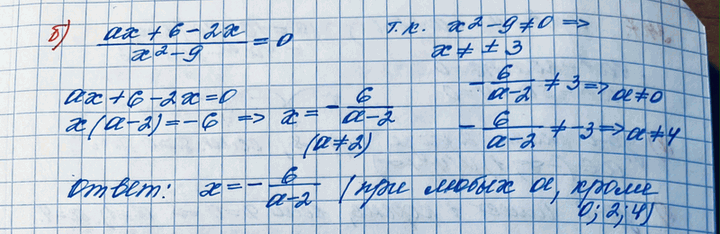 б) (ax + 6 - 2x)/(x² - 9) = 0
т.к. x2 - 9 ≠ 0 =>
x ≠ ± 3
ax + 6 - 2x = 0
x(a-2) = -6 => x = - 6/(a-2)
(a ≠ 2)
- 6/(a-2) ≠ 3 => a ≠ 0
- 6/(a-2) ≠ -3 => a ≠ 4
ответ: x = - 6/(a-2) (при любых a, кроме
0; 2; 4)